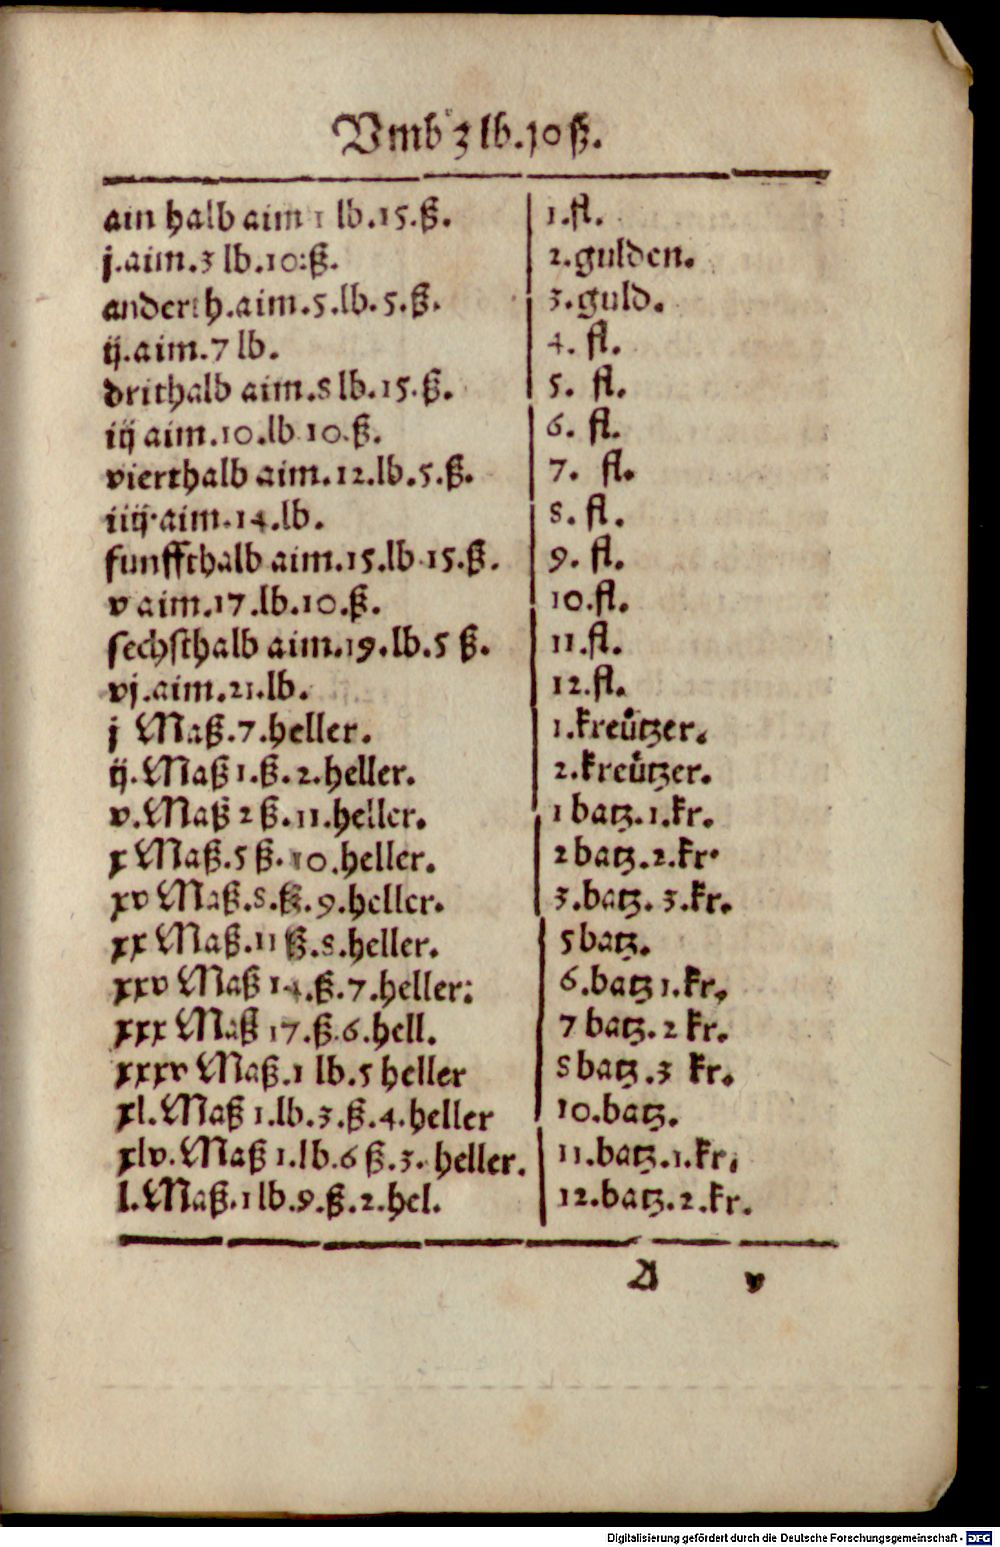 Vmb 3 lb. 10 ß.
ain halb aim 1 lb. 15. ß. 1. fl.
j. aim. 3 lb. 10: ß. 2. gulden.
anderth. aim. 5. lb. 5. ß. 3. guld.
ij. aim. 7 lb. 4. fl.
drithalb aim. 8 lb. 15. ß. 5. fl.
iij aim. 10. lb 10. ß. 6. fl.
vierthalb aim. 12. lb. 5. ß. 7. fl.
iiij. aim. 14. lb. 8. fl.
funffthalb aim. 15. lb 15. ß. 9. fl.
v aim. 17. lb. 10. ß. 10. fl.
sechsthalb aim. 19. lb. 5 ß. 11. fl.
vj. aim. 21. lb. 12. fl.
j Maß. 7. heller. 1. kreůtzer.
ij. Maß 1. ß. 2. heller. 2. kreůtzer.
v. Maß 2 ß. 11. heller. 1 batz. 1. kr.
x Maß. 5 ß. 10. heller. 2 batz. 2. kr.
xv Maß. 8. ß. 9. heller. 3. batz. 3. kr.
xx Maß. 11 ß. 8. heller. 5 batz.
xxv Maß 14. ß. 7. heller: 6. batz 1. kr.
xxx Maß 17. ß. 6. hell. 7 batz. 2 kr.
xxxv Maß. 1 lb. 5 heller 8 batz. 3 kr.
xl. Maß 1. lb. 3. ß. 4. heller 10. batz.
xlv. Maß 1. lb. 6 ß. 3. heller. 11. batz. 1. kr.
l. Maß. 1 lb. 9. ß. 2. hel. 12. batz. 2. kr.
A v
Digitalisierung gefördert durch die Deutsche Forschungsgemeinschaft - DFG